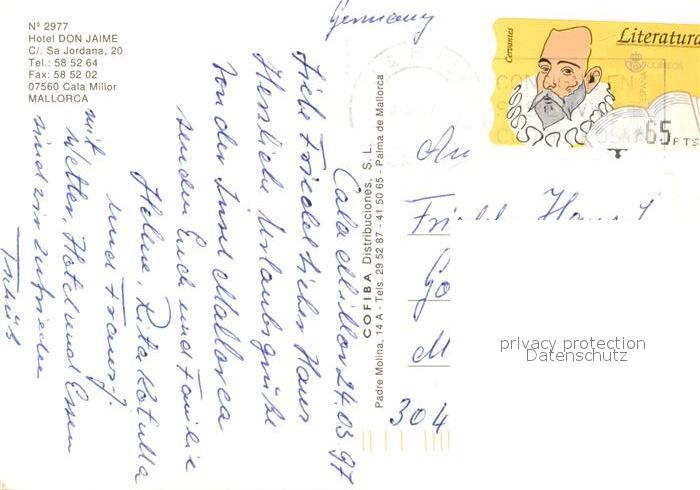 Nº 2977
Hotel DON JAIME
C/. Sa Jordana, 20
Tel.: 58 52 64
Fax: 58 52 02
07560 Cala Millor
MALLORCA
Germany
Cervantes
Literatura
CORREOS
ESPAÑA
65 PTS
Cala Millor 24.03.97
Liebe Friedel Lieber Hans
Herzliche Urlaubsgrüße
von der Insel Mallorca
senden Euch und Familie
Helene, Rita Kotulla
und Franz-J.
mit Wetter, Hotel und Essen
sind wir zufrieden
Tschüß
COFIBA Distribuciones, S. L.
Padre Molina, 14 A - Tels. 29 52 87 - 41 50 65 - Palma de Mallorca
An
Go
M
304
privacy protection
Datenschutz